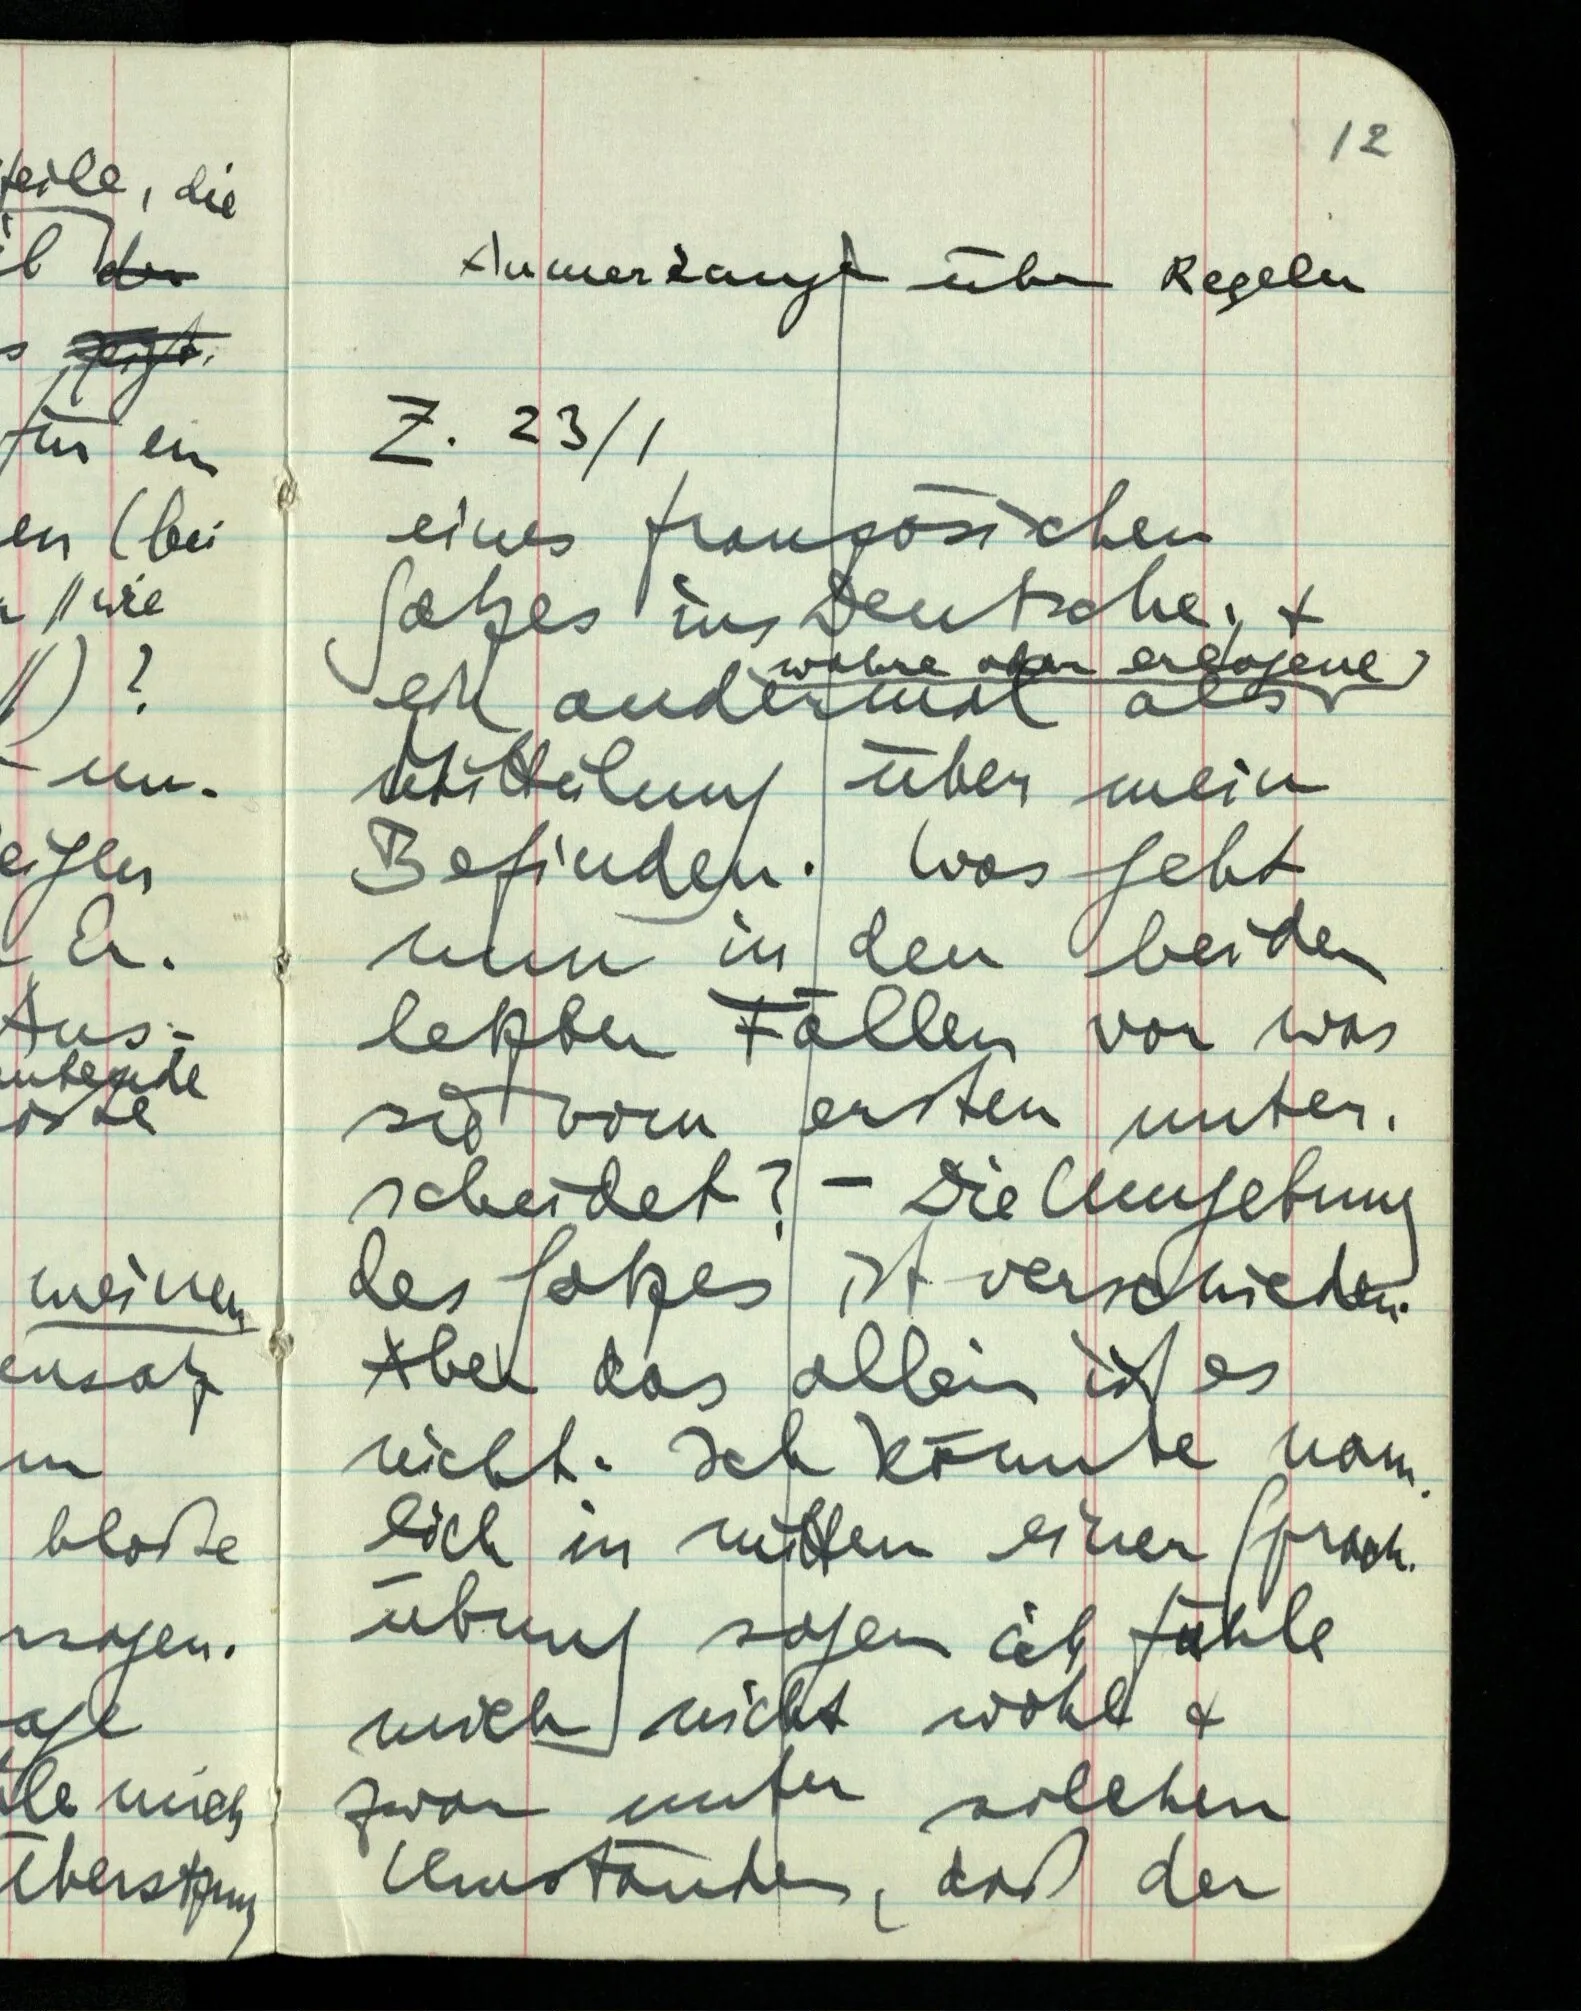 teile, die
der
s zeigt.
für ein
en (bei
// wie
//) ?
- un-
Er-
Aus-
meinen
ensatz
bloße
rsagen.
age
le mich
Übersetzung
12
Anmerkung über Regeln
Z. 23/1
eines französichen
Satzes ins Deutsche, +
wahre oder erlogene
ein andermal als
Mitteilung über mein
Befinden. Was geht
nun in den beiden
letzten Fällen vor was
sie vom ersten unter-
scheidet? – Die Umgebung
des Satzes ist verschieden.
Aber das allein ist es
nicht. Ich könnte näm-
lich in mitten einer Sprach-
übung sagen ich fühle
mich nicht wohl &
zwar unter solchen
Umständen, daß der